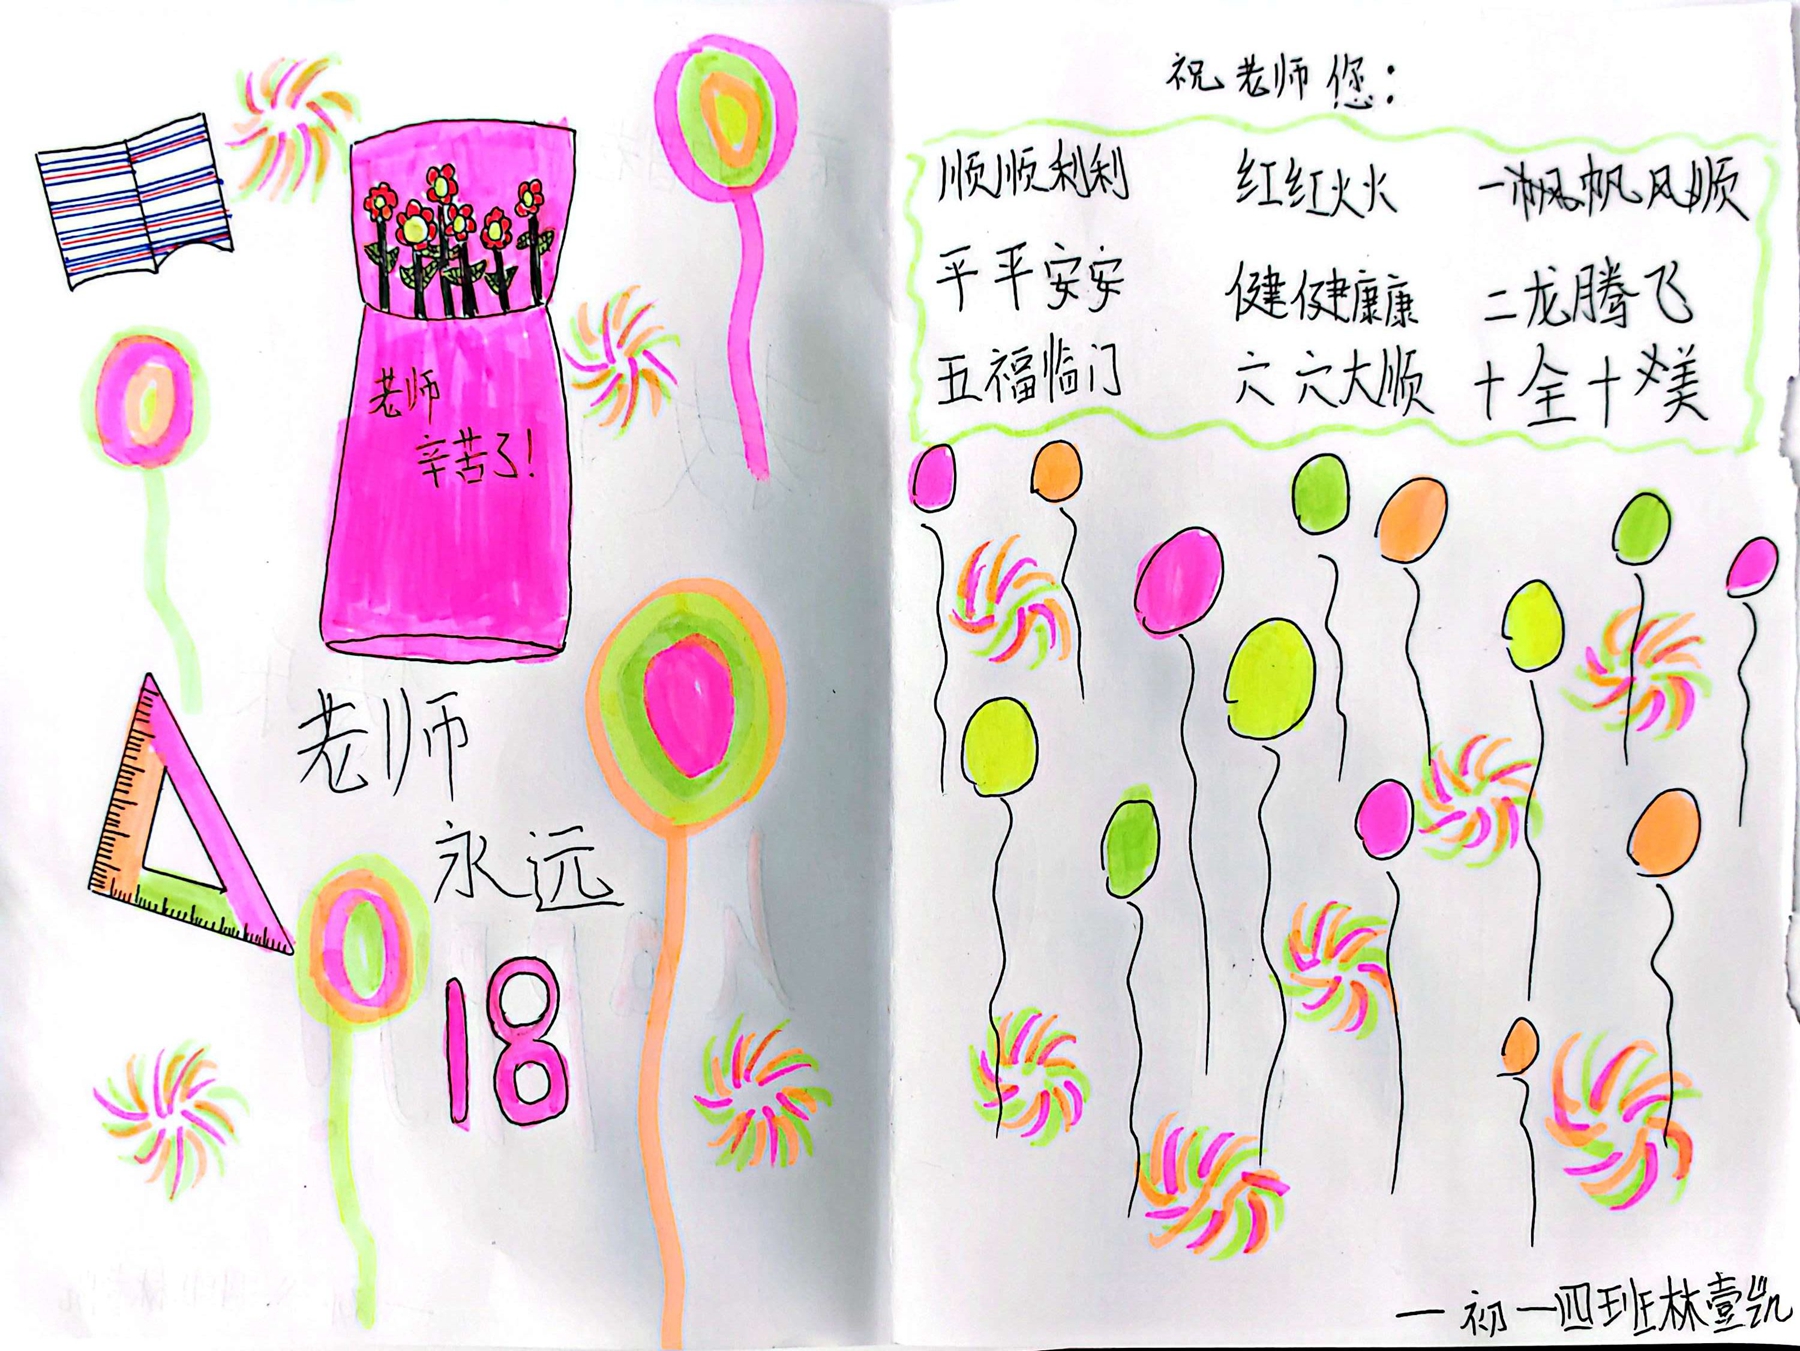 老师
辛苦了!
老师
永远
18
祝老师您:
顺顺利利 红红火火 一帆帆风顺
平平安安 健健康康 二龙腾飞
五福临门 六六大顺 十全十美
一初一四班林壹凯